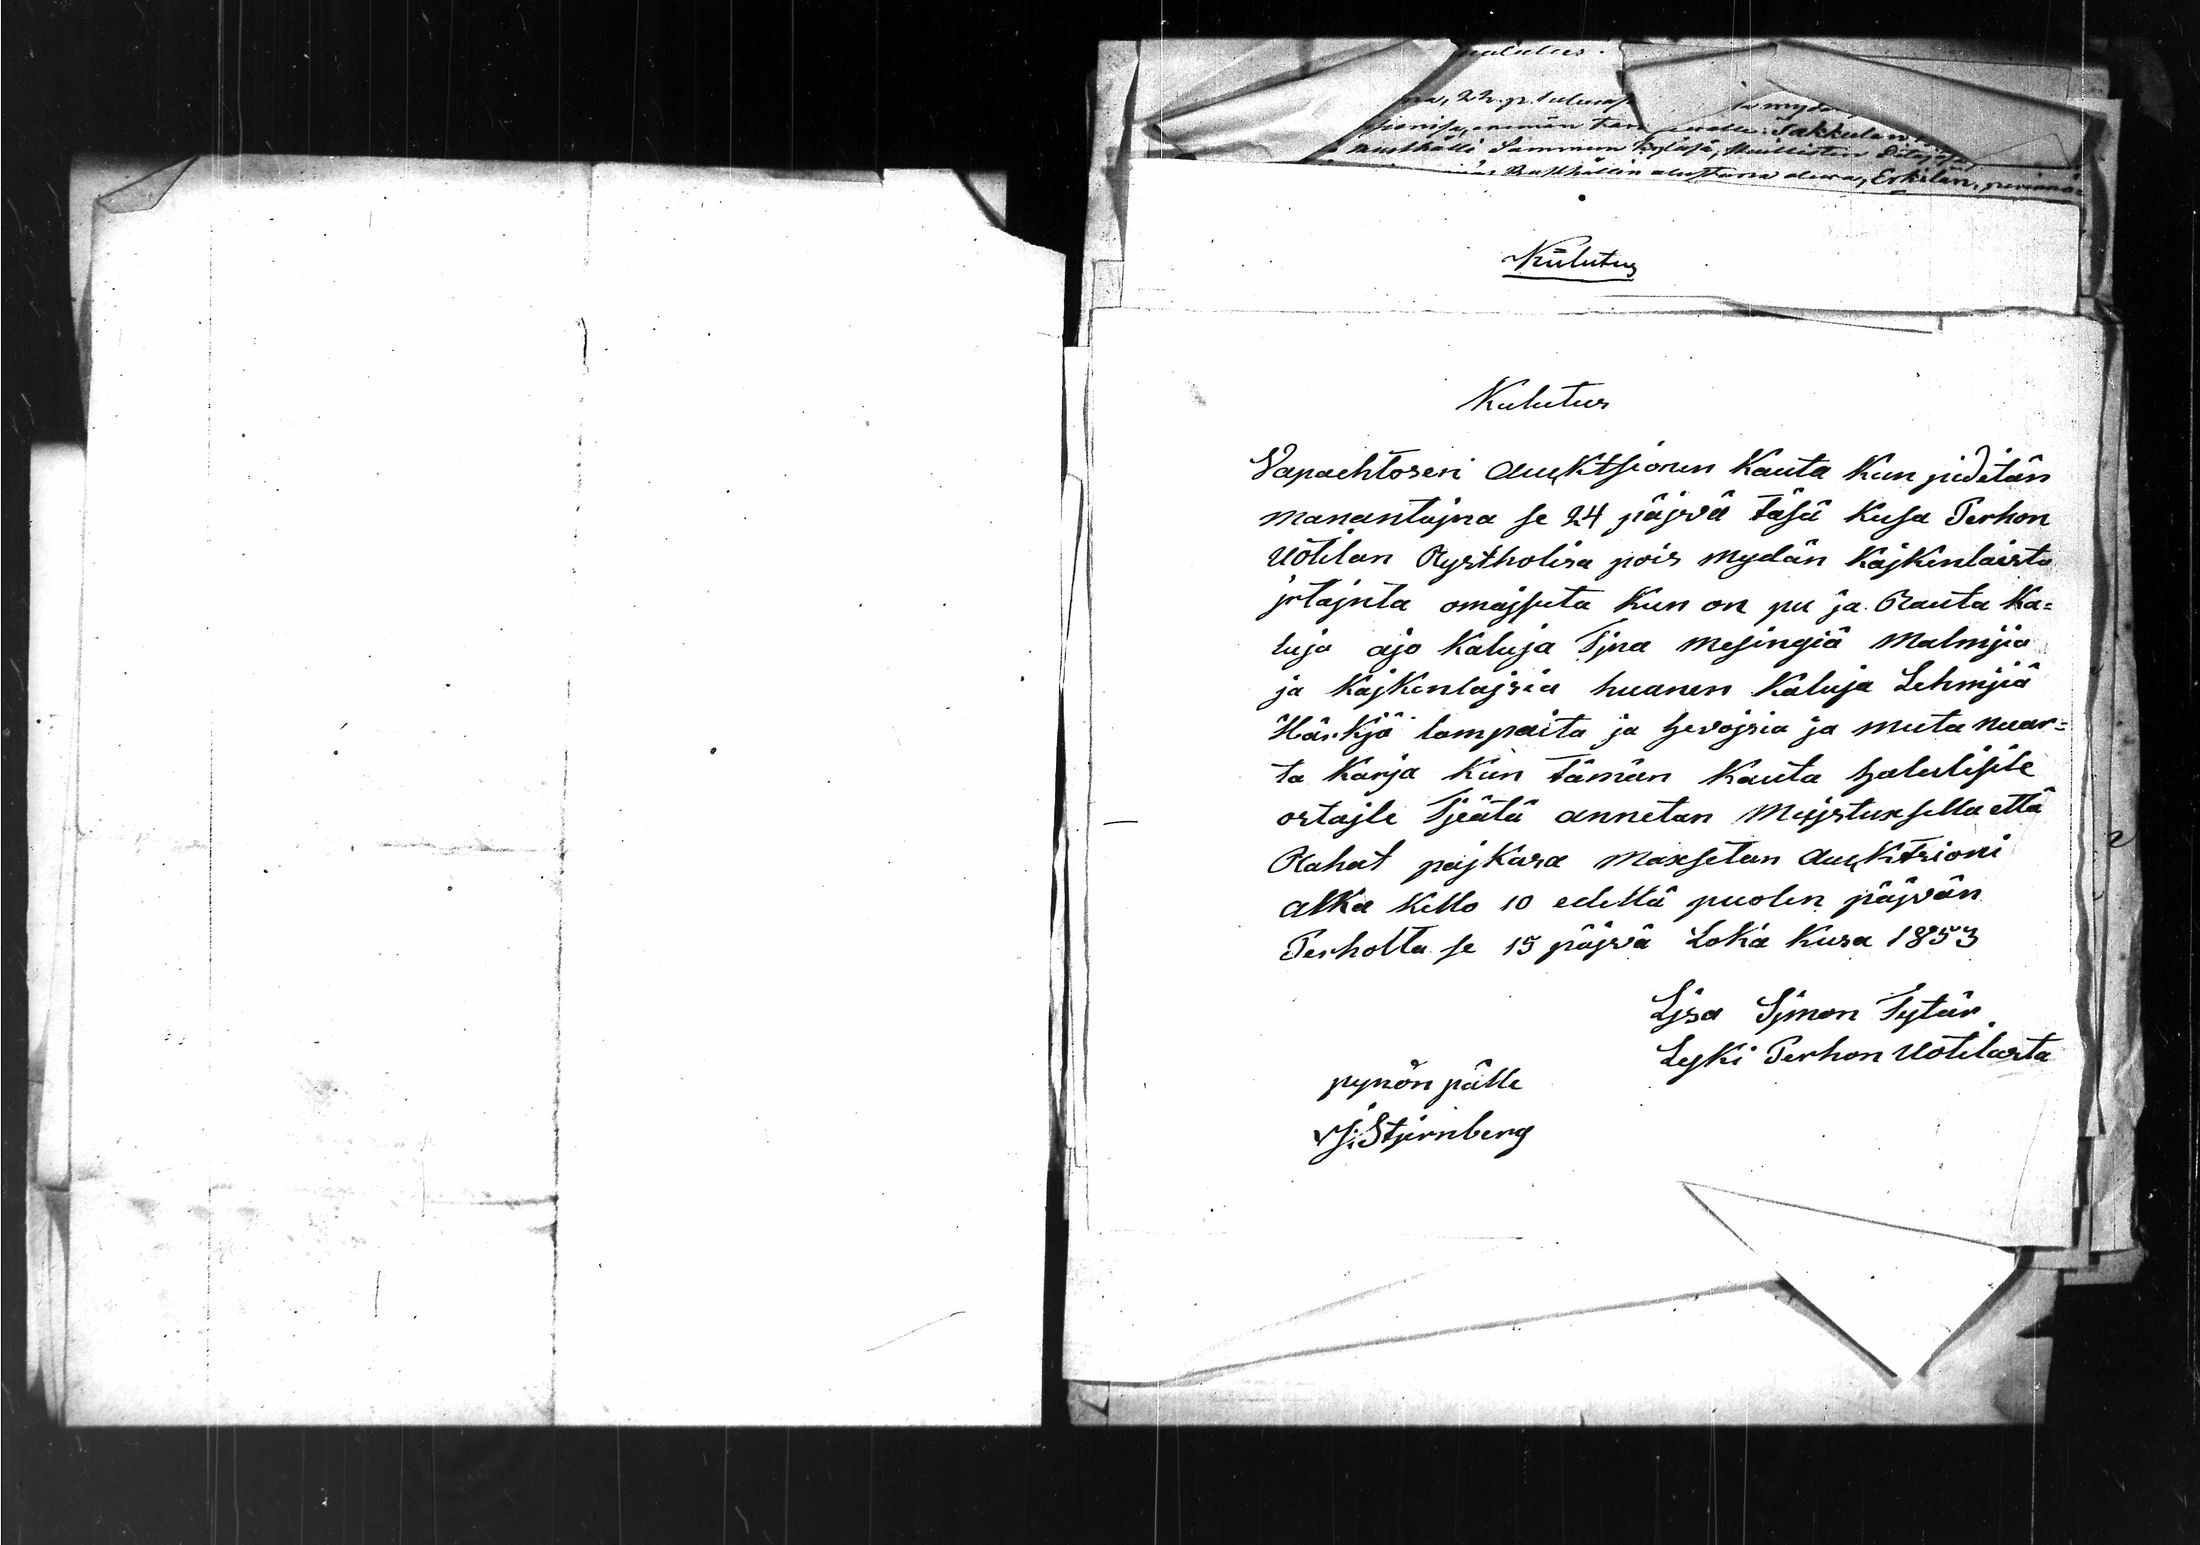 Takkulan
Sammun Kylässä,
Rusthållin alustana olevan, Erkilän,
Kulutus
Kulutus
Vapaehtosen Auktsionin Kauta Kun pidetän
manantajna se 24 päjvä täsä Kusa Perhon
Uotilan Rystholisa pois mydän Kajkenlaista
jrtajnta omajsuta Kun on pu ja Rauta Ka=
luja ajo Kaluja Tjna mesingiä Malmjia
ja Kajkenlajsia huanen Kaluja Lehmjiä
Härkjä lampaita ja hevojsia ja muta nuar=
ta Karja Kun tämän Kauta halulisile
ostajle Tjeätä annetan Mujstuxsella että
Rahat pajkasa maxsetan Auktsioni
alka Kello 10 edellä puolen päjvän
Perholta se 15 päjvä Loka Kusa 1853
Ljsa Sjmon Tytär
Leski Perhon Uotilasta
pynön pälle
J: Stjernberg